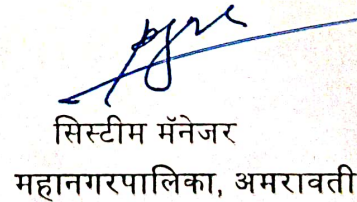 सिस्टीम मॅनेजर
महानगरपालिका, अमरावती